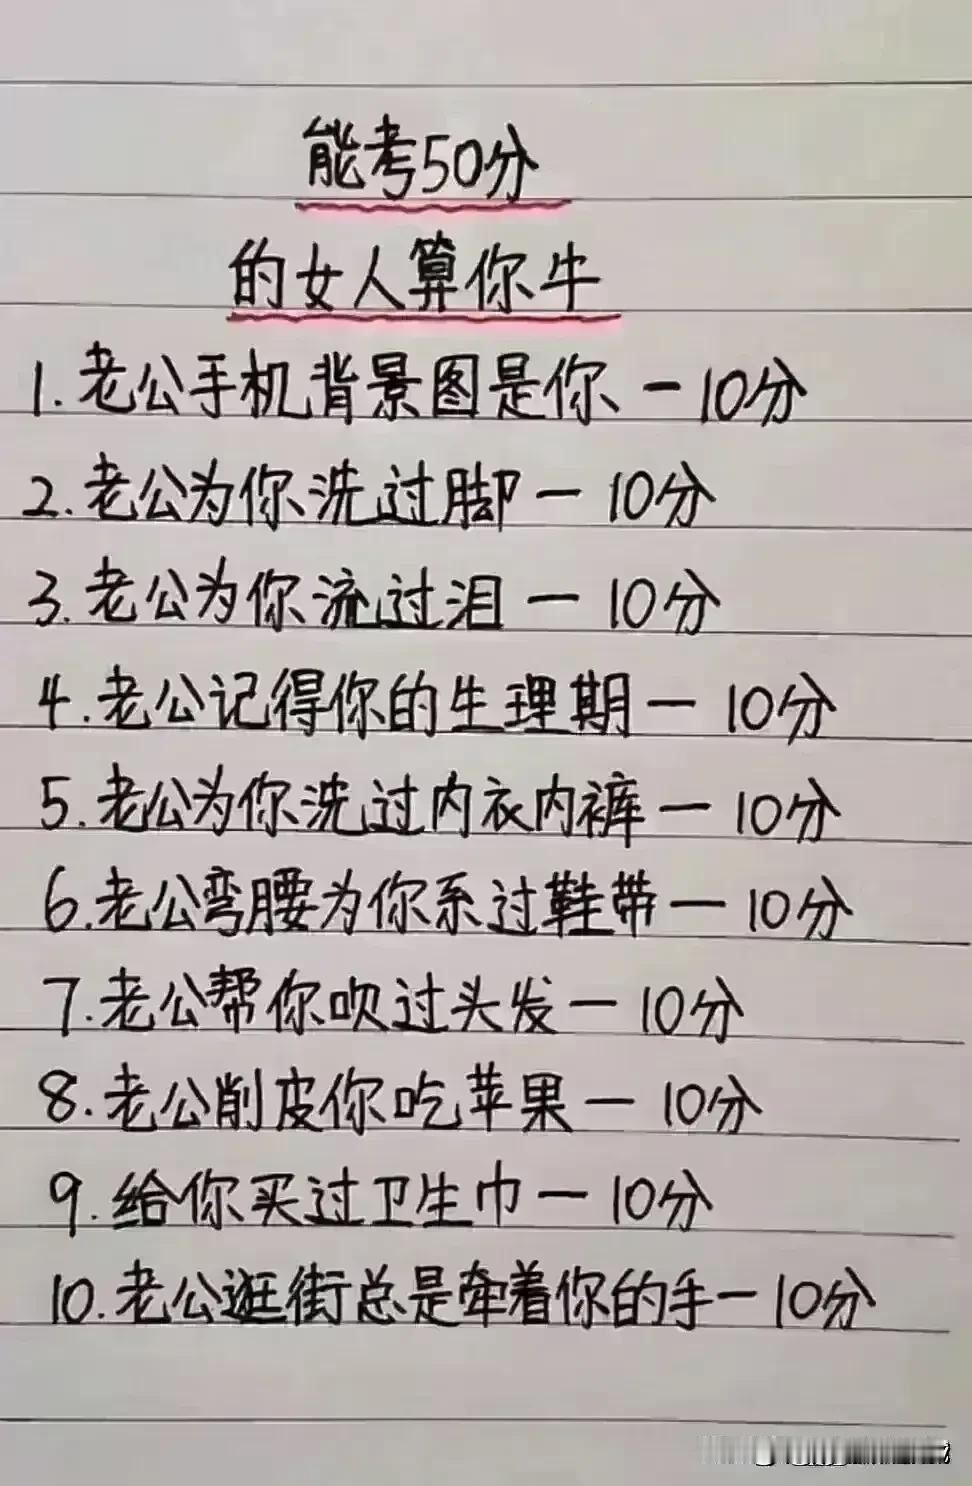 能考50分
的女人算你牛
1.老公手机背景图是你-10分
2.老公为你洗过脚-10分
3.老公为你流过泪-10分
4.老公记得你的生理期-10分
5.老公为你洗过内衣内裤-10分
6.老公弯腰为你系过鞋带-10分
7.老公帮你吹过头发-10分
8.老公削皮你吃苹果-10分
9.给你买过卫生巾-10分
10.老公逛街总是牵着你的手-10分